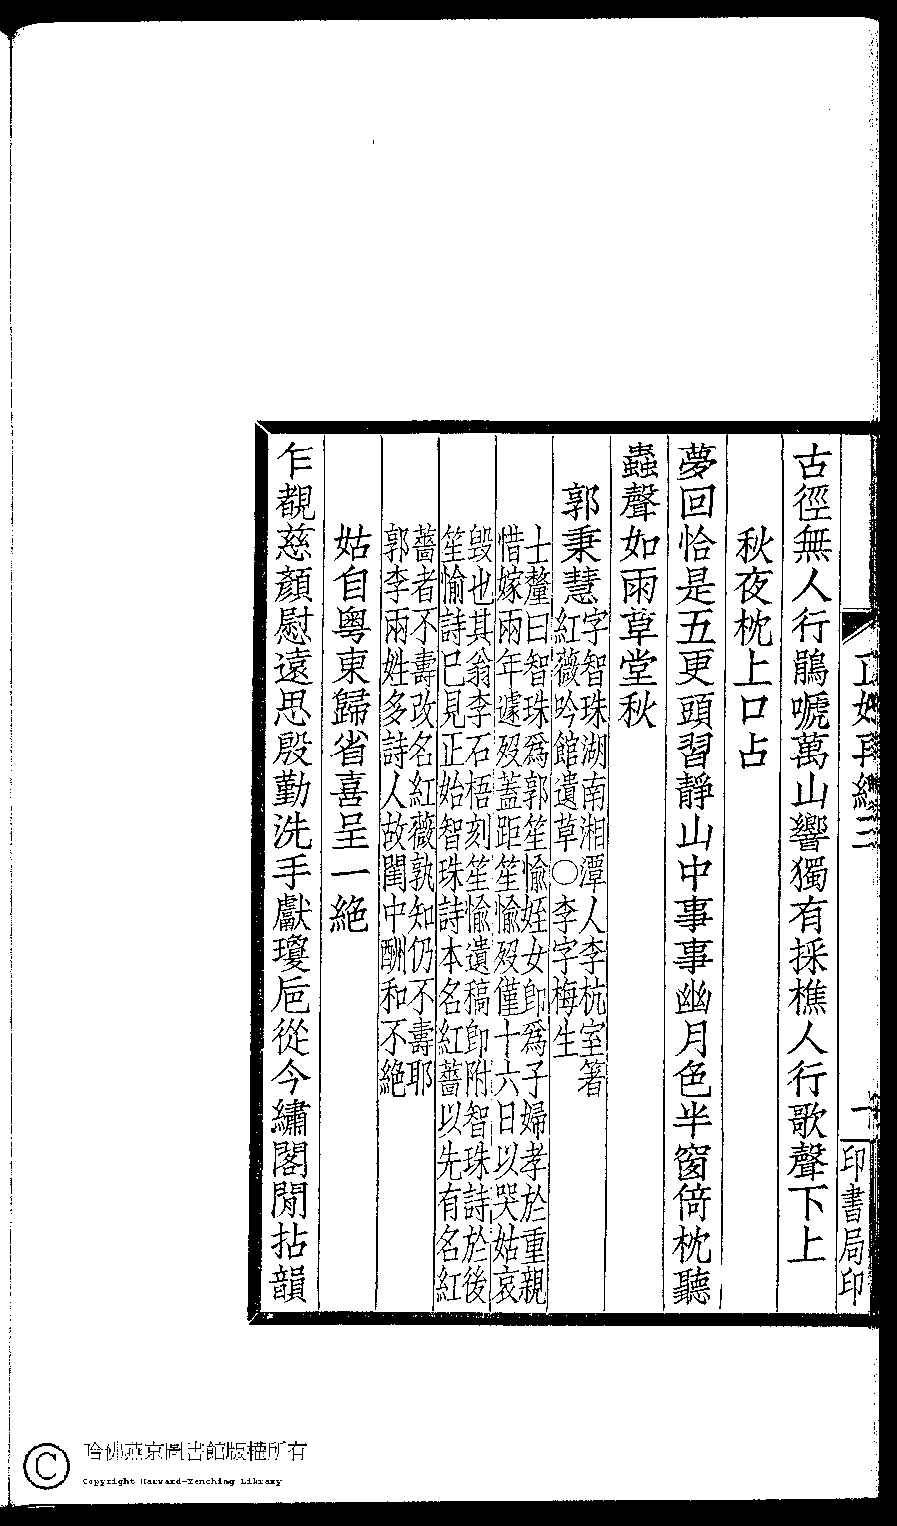 正始再續三
一
印書局印
古徑無人行鵑嗁萬山響獨有採樵人行歌聲下上
秋夜枕上口占
夢回恰是五更頭習靜山中事事幽月色半窗倚枕聽
蟲聲如雨草堂秋
郭秉慧
字智珠湖南湘潭人李杭室箸
紅薇吟館遺草○李字梅生
士釐曰智珠爲郭笙愉姪女卽爲子婦孝於重親
惜嫁兩年遽歿蓋距笙愉歿僅十六日以哭姑哀
毀也其翁李石梧刻笙愉遺稿卽附智珠詩於後
笙愉詩已見正始智珠詩本名紅薔以先有名紅
薔者不壽改名紅薇孰知仍不壽耶
郭李兩姓多詩人故閨中酬和不絶
姑自粵東歸省喜呈一絶
乍覩慈顏慰遠思殷勤洗手獻瓊巵從今繡閣閒拈韻
哈佛燕京圖書館版權所有
Copyright Harvard-Yenching Library